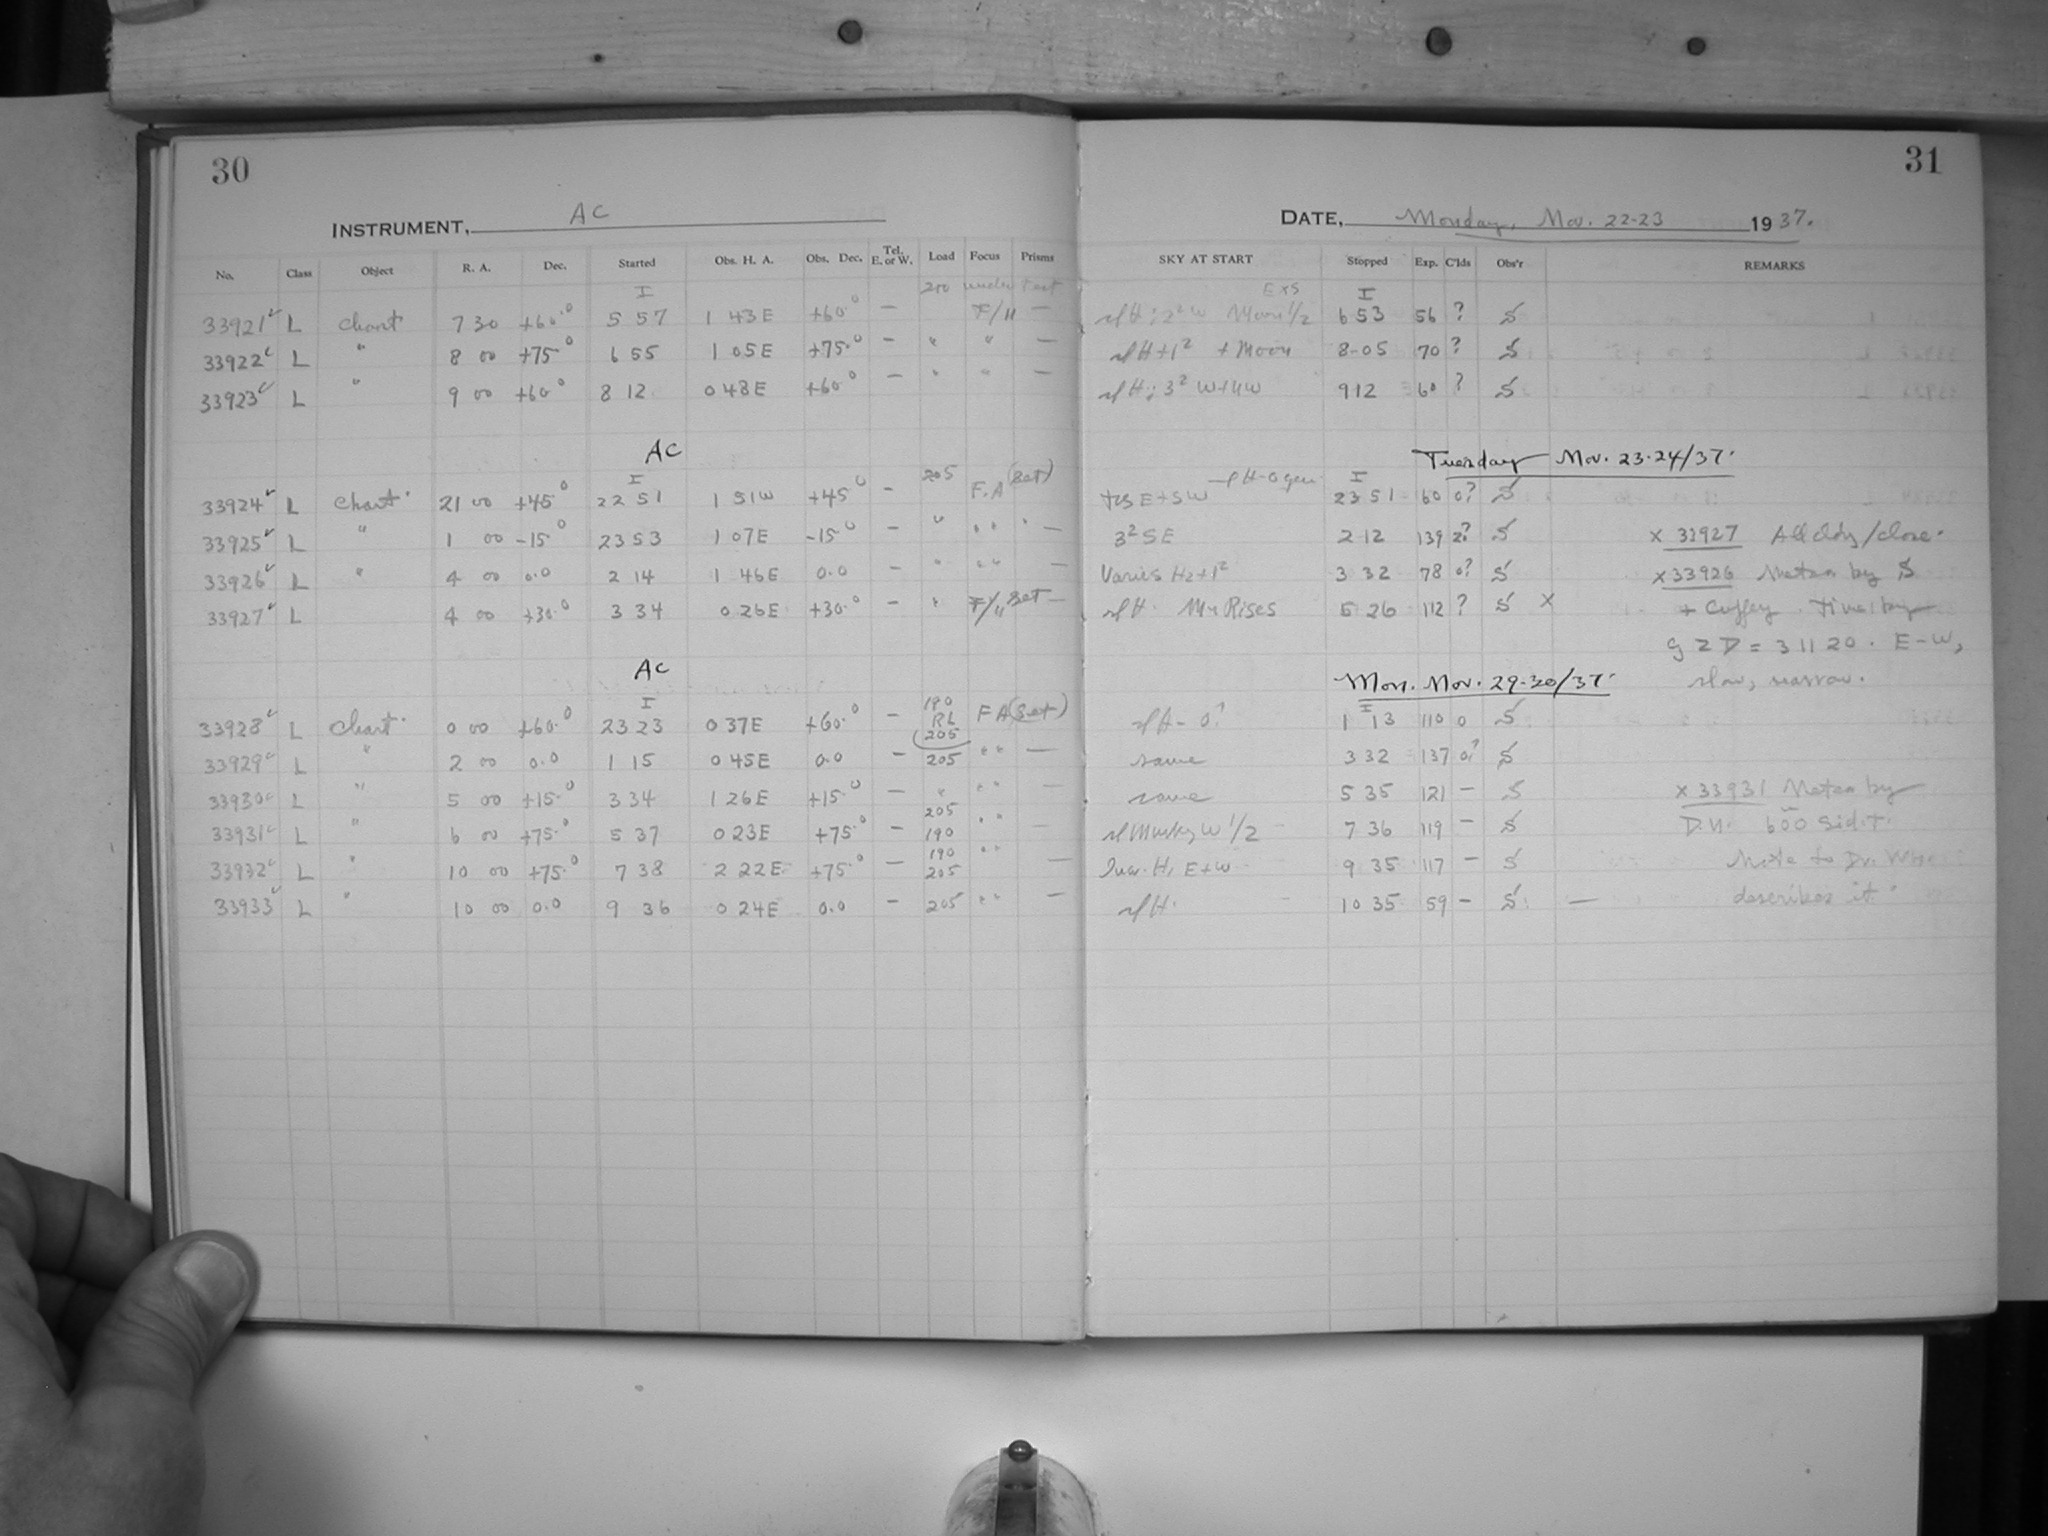 30
31
INSTRUMENT, AC
DATE, Monday, Nov. 22-23 1937.
No. Class Object R. A. Dec. Started Obs. H. A. Obs. Dec. Tel. E. or W. Load Focus Prisms SKY AT START Stopped Exp. C'lds Obs'r REMARKS
I 210 under test I
33921 L Chart 7 30 +60.0 5 57 1 43E +60.0 — F/11 — 6 53 56 ? S
33922 L " 8 00 +75.0 6 55 1 05E +75.0 — " " — + Moon 8-05 70 ? S
33923 L " 9 00 +60.0 8 12 0 48E +60.0 — " " — 9 12 60 ? S
AC Tuesday Nov. 23-24/37.
I 205 (Set) I
33924 L Chart 21 00 +45.0 22 51 1 51W +45.0 — F.A E+SW 23 51 60 0? S
33925 L " 1 00 -15.0 23 53 1 07E -15.0 — " " " — 3² SE 2 12 139 2? S x 33927 All cldy/close.
33926 L " 4 00 0.0 2 14 1 46E 0.0 — " " " — Varies Hz+1² 3 32 78 0? S x 33926 Meteor by S
33927 L 4 00 +30.0 3 34 0 26E +30.0 — " F/11 Set — Mn Rises 5 26 112 ? S x + Cuffey. Time by
g Z D = 3 11 20. E-W,
AC Mon. Nov. 29-30/37. slow, narrow.
I 190 I
33928 L Chart 0 00 +60.0 23 23 0 37E +60.0 — RL 205 F A (Set) 1 13 110 0 S
33929 L " 2 00 0.0 1 15 0 45E 0.0 — 205 " " — same 3 32 137 0? S
33930 L " 5 00 +15.0 3 34 1 26E +15.0 — " " " — same 5 35 121 — S x 33931 Meteor by
33931 L " 6 00 +75.0 5 37 0 23E +75.0 — 205 190 " " — Murky W 1/2 7 36 119 — S D.N. 600 Sid.T.
33932 L " 10 00 +75.0 7 38 2 22E +75.0 — 190 205 " " — H, E+W 9 35 117 — S Note to Dr.
33933 L " 10 00 0.0 9 36 0 24E 0.0 — 205 " " — 10 35 59 — S — describes it.